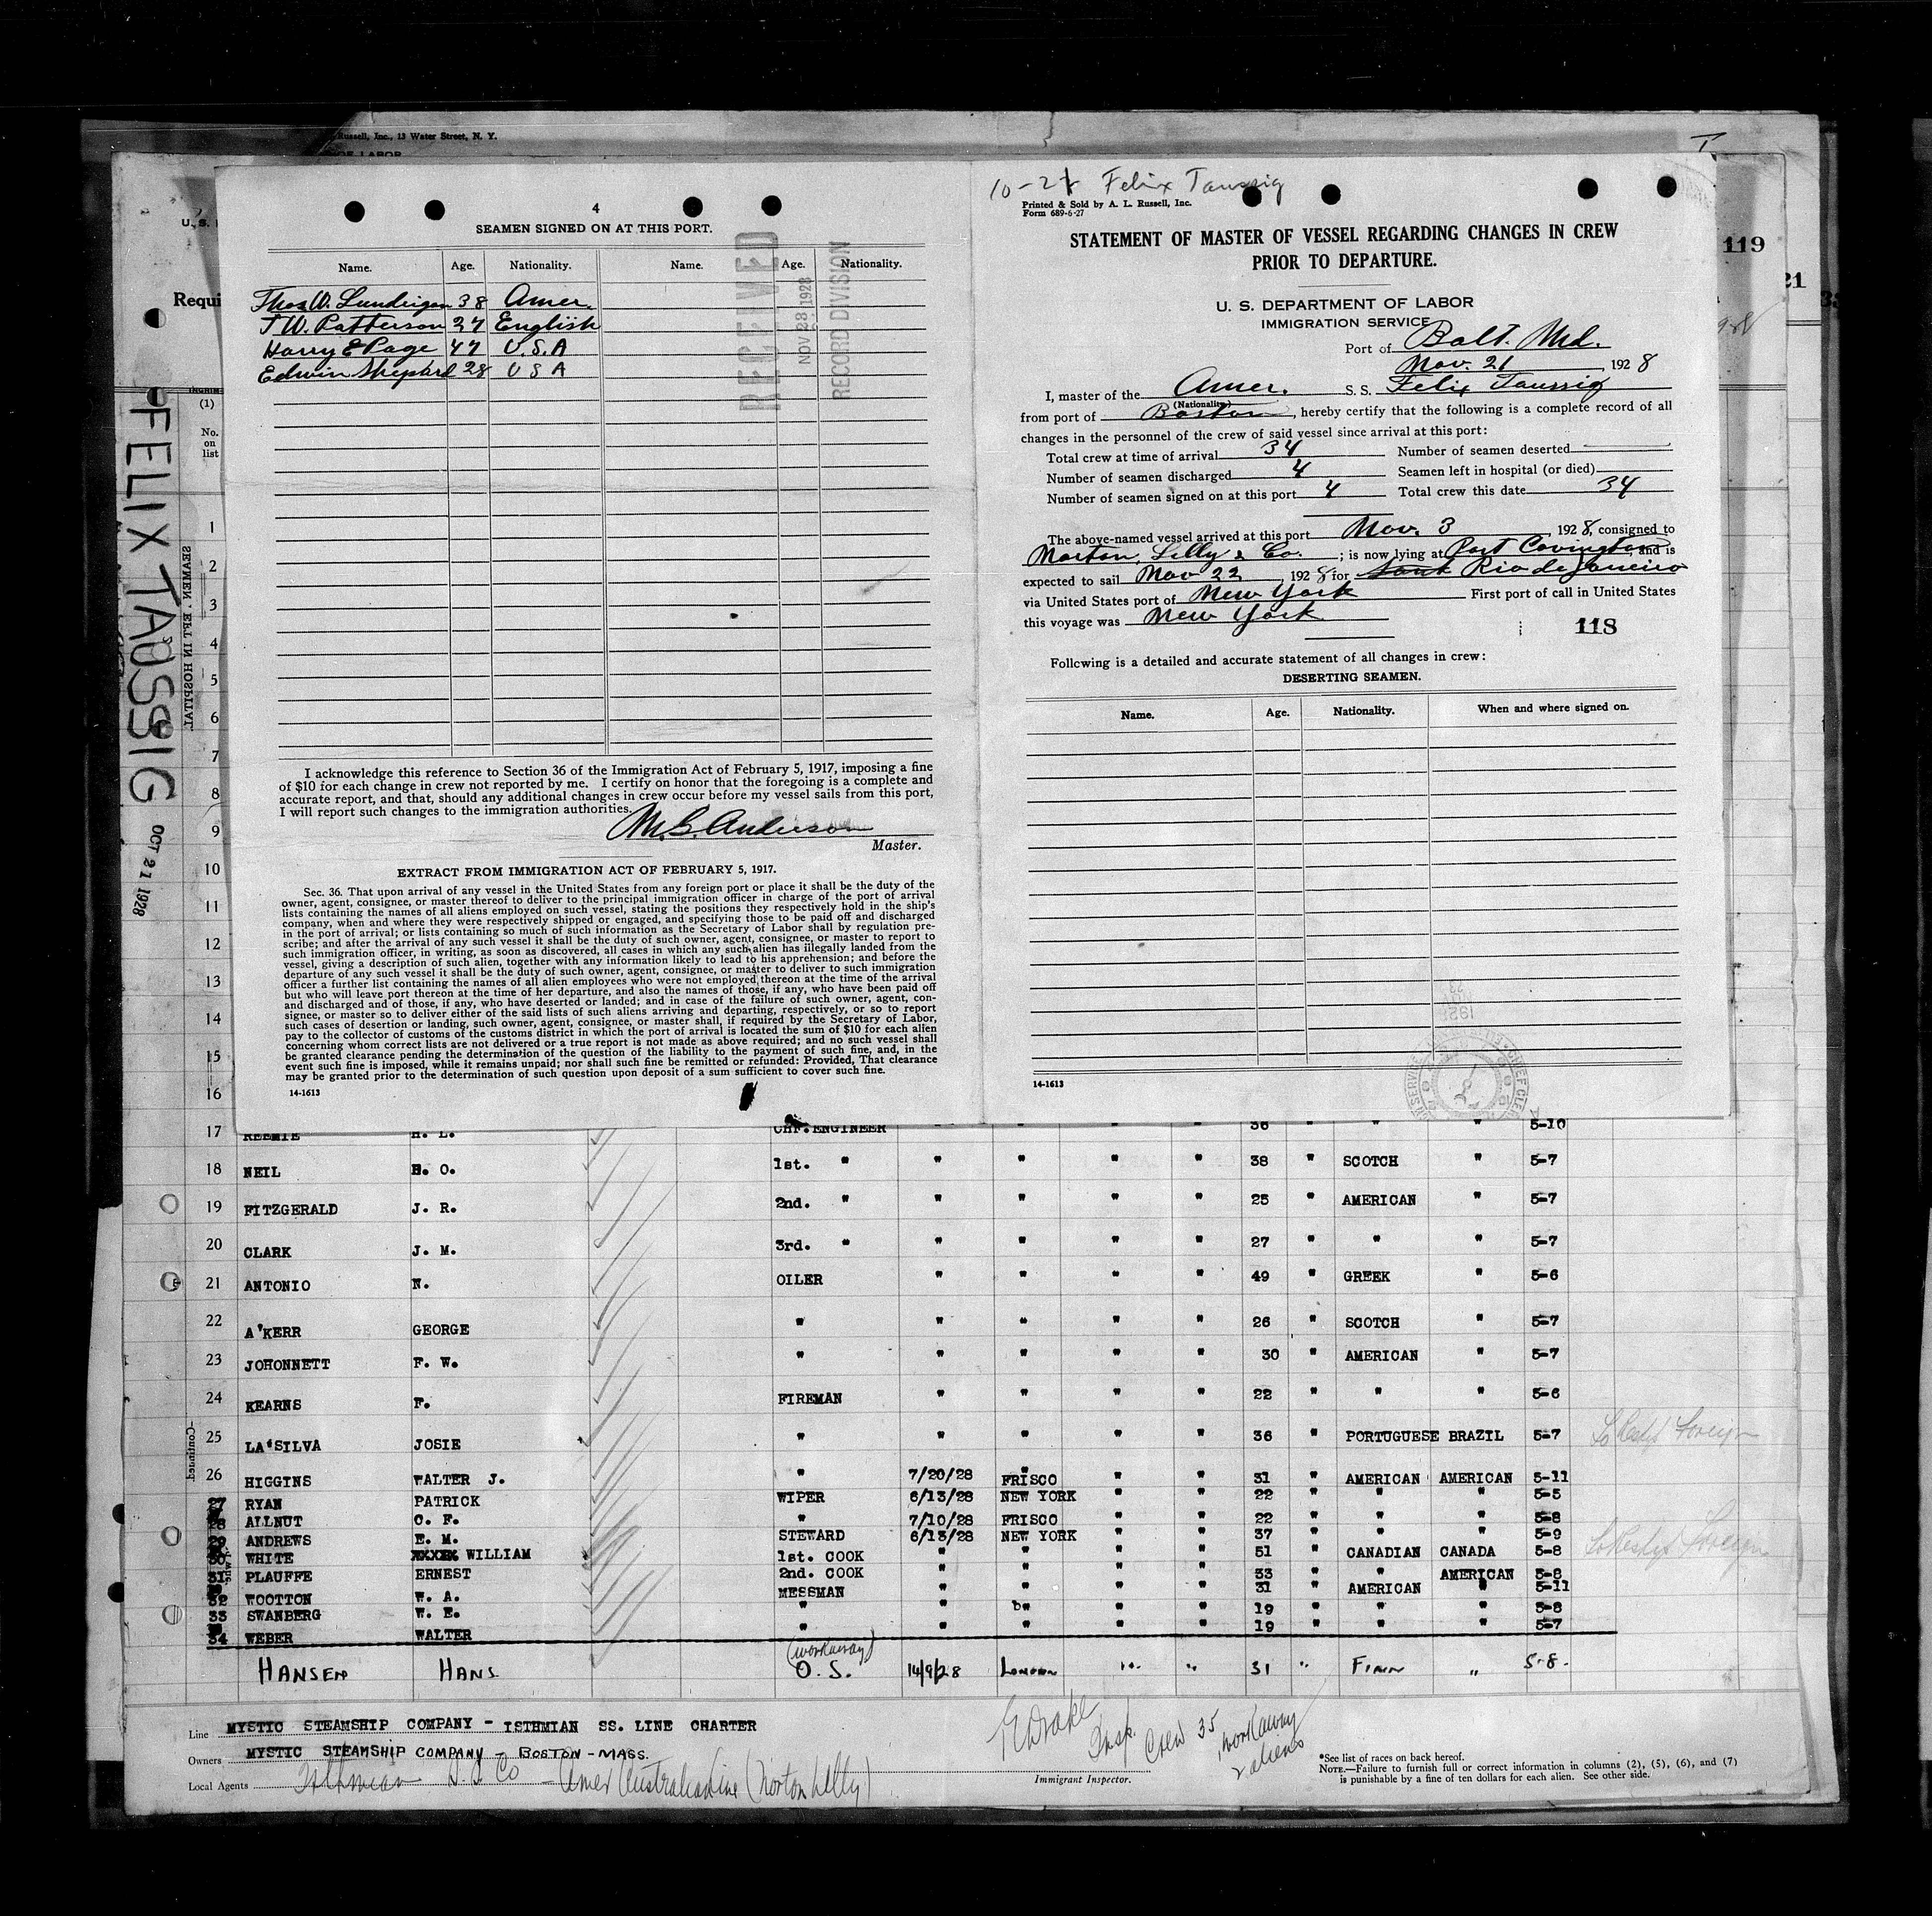 Russell, Inc., 13 Water Street, N. Y.
119
FELIX TAUSSIG OCT 21 1928
4
SEAMEN SIGNED ON AT THIS PORT.
Name. Age. Nationality. Name. Age. Nationality.
Thos W. Lundrigan 38 Amer.
J W. Patterson 27 English
Harry E Page 47 U.S.A
Edwin Shepherd 28 U S A
RECEIVED
NOV 23 1928
RECORD DIVISION
I acknowledge this reference to Section 36 of the Immigration Act of February 5, 1917, imposing a fine
of $10 for each change in crew not reported by me. I certify on honor that the foregoing is a complete and
accurate report, and that, should any additional changes in crew occur before my vessel sails from this port,
I will report such changes to the immigration authorities.
M. G. Anderson
Master.
EXTRACT FROM IMMIGRATION ACT OF FEBRUARY 5, 1917.
Sec. 36. That upon arrival of any vessel in the United States from any foreign port or place it shall be the duty of the
owner, agent, consignee, or master thereof to deliver to the principal immigration officer in charge of the port of arrival
lists containing the names of all aliens employed on such vessel, stating the positions they respectively hold in the ship's
company, when and where they were respectively shipped or engaged, and specifying those to be paid off and discharged
in the port of arrival; or lists containing so much of such information as the Secretary of Labor shall by regulation pre-
scribe; and after the arrival of any such vessel it shall be the duty of such owner, agent, consignee, or master to report to
such immigration officer, in writing, as soon as discovered, all cases in which any such alien has illegally landed from the
vessel, giving a description of such alien, together with any information likely to lead to his apprehension; and before the
departure of any such vessel it shall be the duty of such owner, agent, consignee, or master to deliver to such immigration
officer a further list containing the names of all alien employees who were not employed thereon at the time of the arrival
but who will leave port thereon at the time of her departure, and also the names of those, if any, who have been paid off
and discharged and of those, if any, who have deserted or landed; and in case of the failure of such owner, agent, con-
signee, or master so to deliver either of the said lists of such aliens arriving and departing, respectively, or so to report
such cases of desertion or landing, such owner, agent, consignee, or master shall, if required by the Secretary of Labor,
pay to the collector of customs of the customs district in which the port of arrival is located the sum of $10 for each alien
concerning whom correct lists are not delivered or a true report is not made as above required; and no such vessel shall
be granted clearance pending the determination of the question of the liability to the payment of such fine, and, in the
event such fine is imposed, while it remains unpaid; nor shall such fine be remitted or refunded: Provided, That clearance
may be granted prior to the determination of such question upon deposit of a sum sufficient to cover such fine.
14-1613
Felix Taussig
Printed & Sold by A. L. Russell, Inc.
Form 689-6-27
STATEMENT OF MASTER OF VESSEL REGARDING CHANGES IN CREW
PRIOR TO DEPARTURE.
U. S. DEPARTMENT OF LABOR
IMMIGRATION SERVICE
Port of Balt. Md.
Nov. 21, 1928
I, master of the Amer. S. S. Felix Taussig
(Nationality)
from port of Boston, hereby certify that the following is a complete record of all
changes in the personnel of the crew of said vessel since arrival at this port:
Total crew at time of arrival 34 Number of seamen deserted
Number of seamen discharged 4 Seamen left in hospital (or died)
Number of seamen signed on at this port 4 Total crew this date 34
The above-named vessel arrived at this port Nov. 3, 1928, consigned to
Norton, Lilly & Co.; is now lying at Port Covington, and is
expected to sail Nov 22, 1928 for Rio de Janeiro
via United States port of New York First port of call in United States
this voyage was New York
118
Following is a detailed and accurate statement of all changes in crew:
DESERTING SEAMEN.
Name. Age. Nationality. When and where signed on.
14-1613
(1)
No.
on
list
SEAMEN LEFT IN HOSPITAL.
1
2
3
4
5
6
7
8
9
10
11
12
13
14
15
16
17 H. L. CHF. ENGINEER " " " " 36 " " " 5-10
18 NEIL H. O. 1st. " " " " " 38 " SCOTCH " 5-7
19 FITZGERALD J. R. 2nd. " " " " " 25 " AMERICAN " 5-7
20 CLARK J. M. 3rd. " " " " " 27 " " " 5-7
21 ANTONIO N. OILER " " " " 49 " GREEK " 5-6
22 A'KERR GEORGE " " " " " 26 " SCOTCH " 5-7
23 JOHONNETT F. W. " " " " " 30 " AMERICAN " 5-7
24 KEARNS F. FIREMAN " " " " 22 " " " 5-6
25 LA'SILVA JOSIE " " " " " 36 " PORTUGUESE BRAZIL 5-7
26 HIGGINS WALTER J. " 7/20/28 FRISCO " " 31 " AMERICAN AMERICAN 5-11
27 RYAN PATRICK WIPER 6/13/28 NEW YORK " " 22 " " " 5-5
28 ALLNUT C. F. " 7/10/28 FRISCO " " 22 " " " 5-8
29 ANDREWS E. M. STEWARD 6/13/28 NEW YORK " " 37 " " " 5-9
30 WHITE WILLIAM 1st. COOK " " " " 51 " CANADIAN CANADA 5-8
31 PLAUFFE ERNEST 2nd. COOK " " " " 33 " " AMERICAN 5-8
32 WOOTTON W. A. MESSMAN " " " " 31 " AMERICAN " 5-11
33 SWANBERG W. E. " " " " " 19 " " " 5-8
34 WEBER WALTER " " " " " 19 " " " 5-7
(workaway)
HANSEN HANS O. S. 14/9/28 London " " 31 " FINN " 5-8.
Line MYSTIC STEAMSHIP COMPANY - ISTHMIAN SS. LINE CHARTER
Owners MYSTIC STEAMSHIP COMPANY - BOSTON - MASS.
Local Agents Isthmian S. S. Co - Amer Australia Line (Norton Lilly)
Drake Insp. Crew 35, workaway
2 aliens
Immigrant Inspector.
*See list of races on back hereof.
NOTE.—Failure to furnish full or correct information in columns (2), (5), (6), and (7)
is punishable by a fine of ten dollars for each alien. See other side.